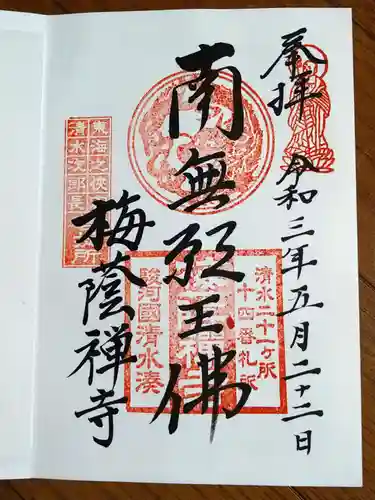 奉拝
令和三年五月二十二日
清水二十一ヶ所
十四番札所
南無願王佛
駿河國清水湊
梅蔭禅寺
東海之侠
清水次郎長